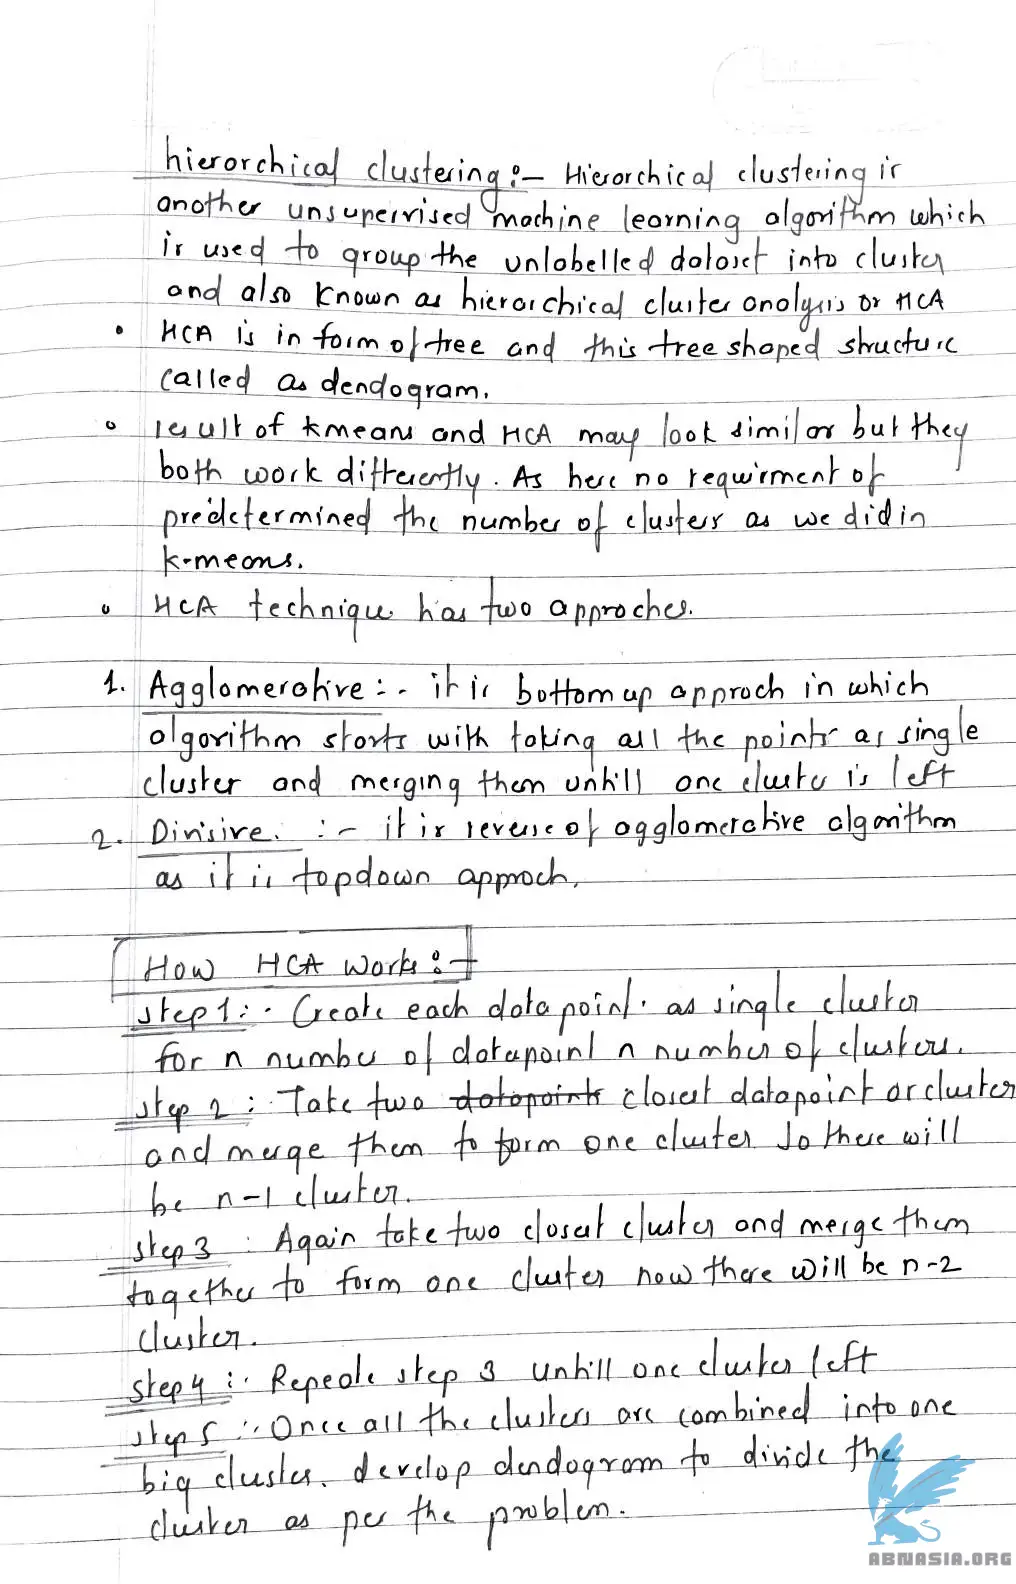 hierarchical clustering :- Hierarchical clustering is
another unsupervised machine learning algorithm which
is used to group the unlabelled dataset into cluster
and also known as hierarchical cluster analysis or HCA
• HCA is in form of tree and this tree shaped structure
called as dendogram.
• result of kmeans and HCA may look similar but they
both work differently. As here no requirment of
predetermined the number of clusters as we did in
k-means.
• HCA technique has two approches.
1. Agglomerative :- it is bottom up approch in which
algorithm starts with taking all the points as single
cluster and merging them untill one cluster is left
2. Divisive. :- it is reverse of agglomerative algorithm
as it is topdown approch.
How HCA works :-
step 1 :- Create each data point as single cluster
for n number of datapoint n number of clusters.
step 2 : Take two datapoints closest datapoint or cluster
and merge them to form one cluster so there will
be n-1 cluster.
step 3 : Again take two closest cluster and merge them
together to form one cluster now there will be n-2
cluster.
step 4 :- Repeate step 3 untill one cluster left
step 5 :- Once all the clusters are combined into one
big cluster. develop dendogram to divide the
cluster as per the problem.
ABNASIA.ORG